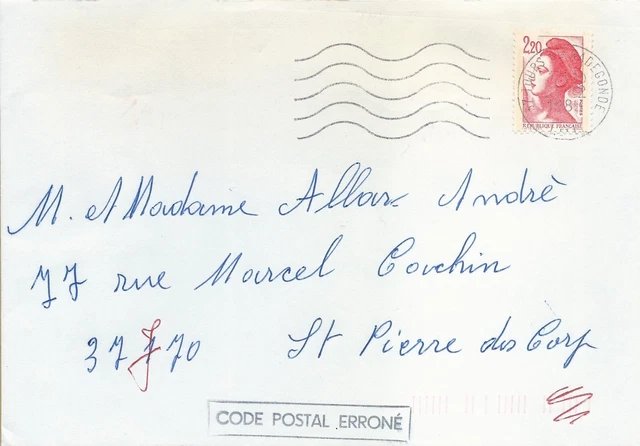 2,20
TOURS
DEGONDE
RÉPUBLIQUE FRANÇAISE
M. et Madame Allar André
77 rue Marcel Cachin
37 7 70 St Pierre des Corp
CODE POSTAL ERRONÉ